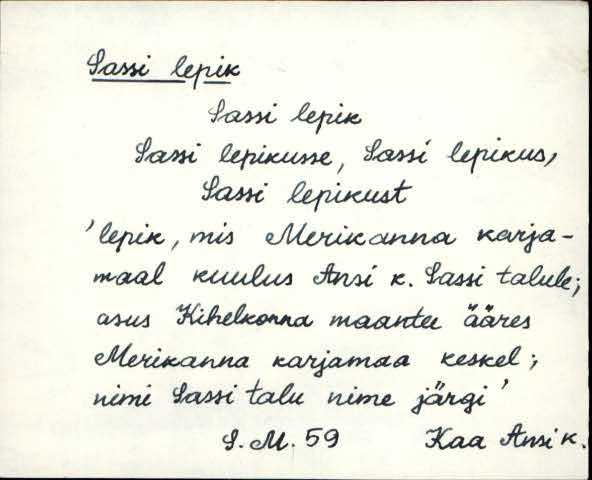 Sassi lepik
Sassi lepik
Sassi lepikusse, Sassi lepikus,
Sassi lepikust
'lepik, mis Merikanna karja-
maal kuulus Ansi k. Sassi talule;
asus Kihelkonna maantee ääres
Merikanna karjamaa keskel;
nimi Sassi talu nime järgi'
S.M. 59 Kaa Ansi k.